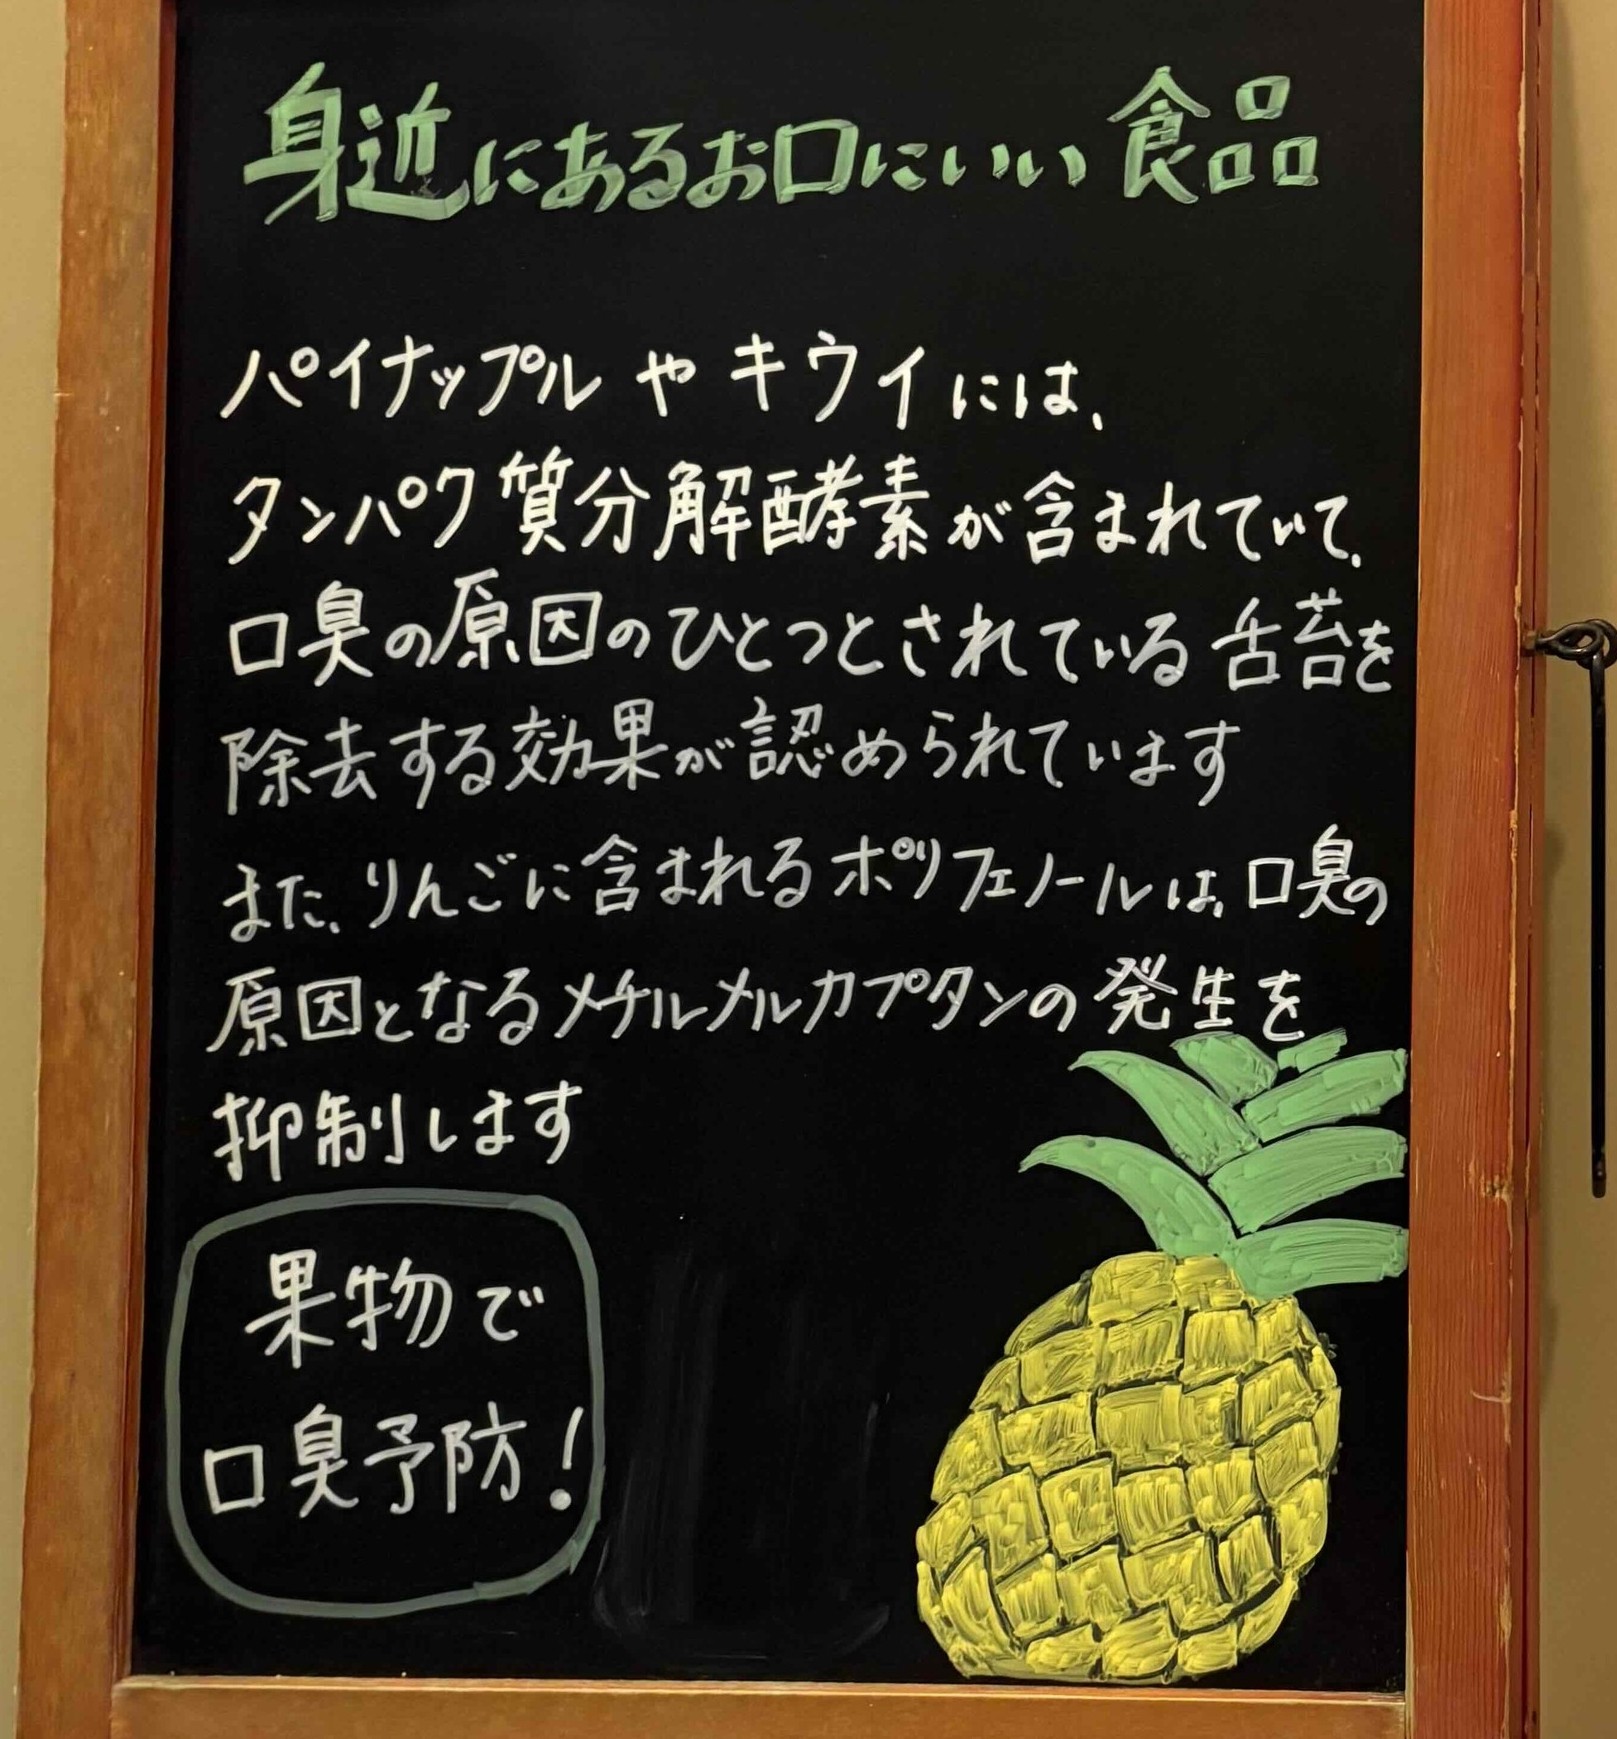 身近にあるお口にいい食品
パイナップルやキウイには、
タンパク質分解酵素が含まれていて、
口臭の原因のひとつとされている舌苔を
除去する効果が認められています
また、りんごに含まれるポリフェノールは、口臭の
原因となるメチルメルカプタンの発生を
抑制します
果物で
口臭予防!